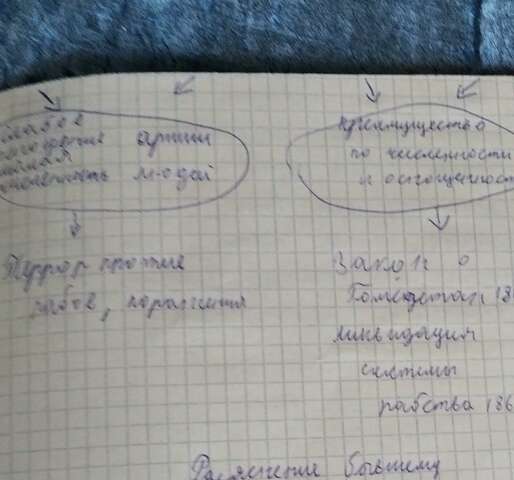 слабое
армии
людей
преимущество
по численности
и оснащенност
Террор против
рабов, поражения
Закон о
Гомстедах 18
ликвидация
системы
рабства 186
бывшему